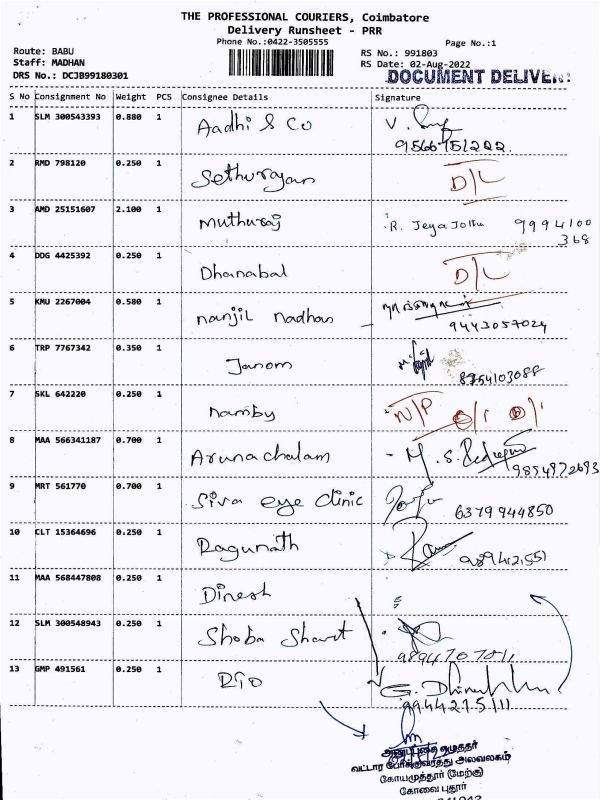 THE PROFESSIONAL COURIERS, Coimbatore
Delivery Runsheet - PRR
Phone No.:0422-3505555
Page No.:1
Route: BABU
RS No.: 991803
Staff: MADHAN
RS Date: 02-Aug-2022
DRS No.: DCJB99180301
DOCUMENT DELIVE
S No Consignment No Weight PCS Consignee Details Signature
1 SLM 300543393 0.880 1 Aadhi & Co
2 RMD 798120 0.250 1 Sethurajan D/L
3 AMD 25151607 2.100 1 Muthuraj R. Jeya Jothi 9994100
368
4 DDG 4425392 0.250 1 Dhanabal D/L
5 KMU 2267004 0.580 1 nanjil nadhan
9443057024
6 TRP 7767342 0.350 1 Janom
8754103088
7 SKL 642220 0.250 1 Namby N/P
8 MAA 566341187 0.700 1 Arunachalam M. S.
9 MRT 561770 0.700 1 Siva eye clinic
6379944850
10 CLT 15364696 0.250 1 Ragunath
11 MAA 568447808 0.250 1 Dinesh
12 SLM 300548943 0.250 1 Shoba Sharat
13 GMP 491561 0.250 1 Rio G.
வட்டார போக்குவரத்து அலுவலகம்
கோயமுத்தூர் (மேற்கு)
கோவை புதூர்